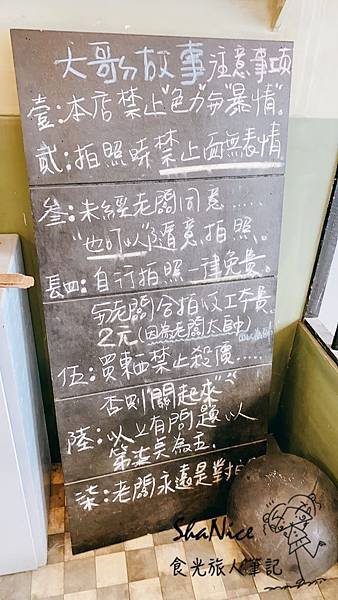 大哥ㄉ故事注意事項
壹:本店禁止"色力"與"暴情"。
貳:拍照時禁止面無表情
叁:未經老闆同意.....
"也可以"隨意拍照。
肆:自行拍照一律免費。
與老闆合拍收工本費。
2元(因為老闆太帥)
伍:買東西禁止殺價.....
否則"關起來"
陸:以上有問題以
第柒點為主.
柒:老闆永遠是對
ShaNice
食光旅人筆記